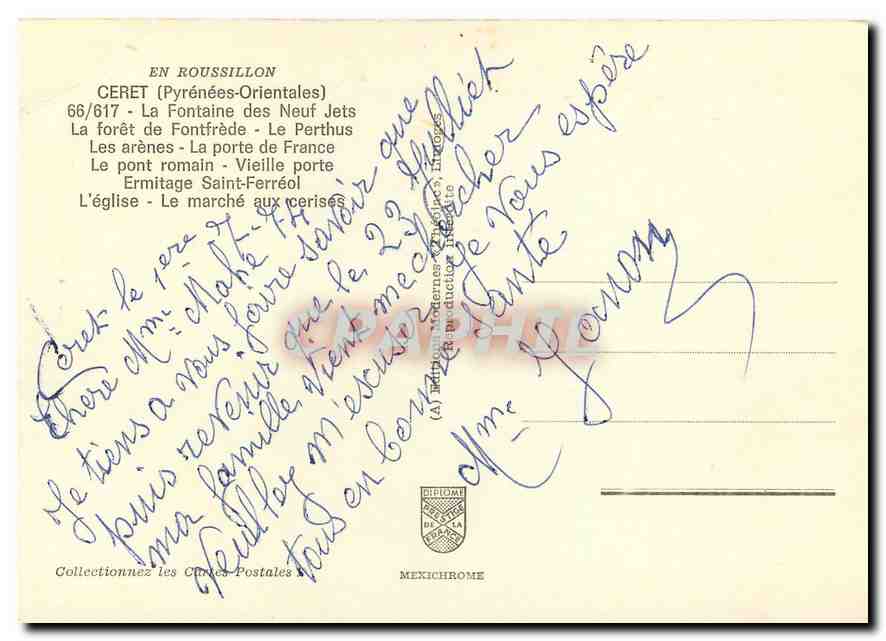 EN ROUSSILLON
CERET (Pyrénées-Orientales)
66/617 - La Fontaine des Neuf Jets
La forêt de Fontfrède - Le Perthus
Les arènes - La porte de France
Le pont romain - Vieille porte
Ermitage Saint-Ferréol
L'église - Le marché aux cerises
Ceret le 1ere 7
chere Mme Mahé
Je tiens a vous faire savoir que
puis revenir que le 23 Juillet
ma famille vient me chercher
Veuillez m'escuser Je vous espère
tous en bonne santé
Mme
(A) Editions Modernes « Théojac », Limoges
Reproduction interdite
CPAPHIL
DIPLOME
PRESTIGE
DE LA
FRANCE
Collectionnez les Cartes Postales
MEXICHROME